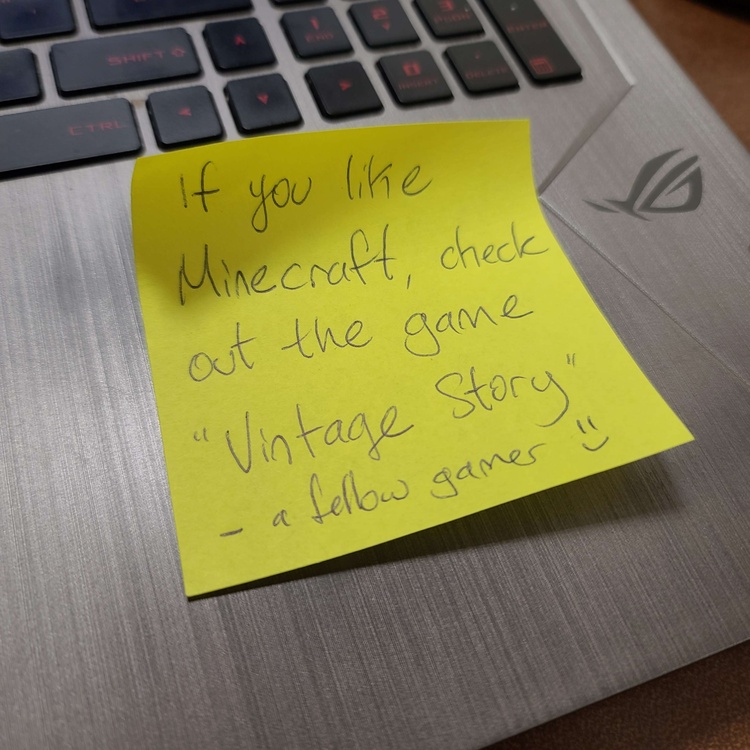 SHIFT ⇧
1
END
2
▼
3
PGDN
ENTER
CTRL
0
INSERT
.
DELETE
If you like
Minecraft, check
out the game
"Vintage Story"
- a fellow gamer :)